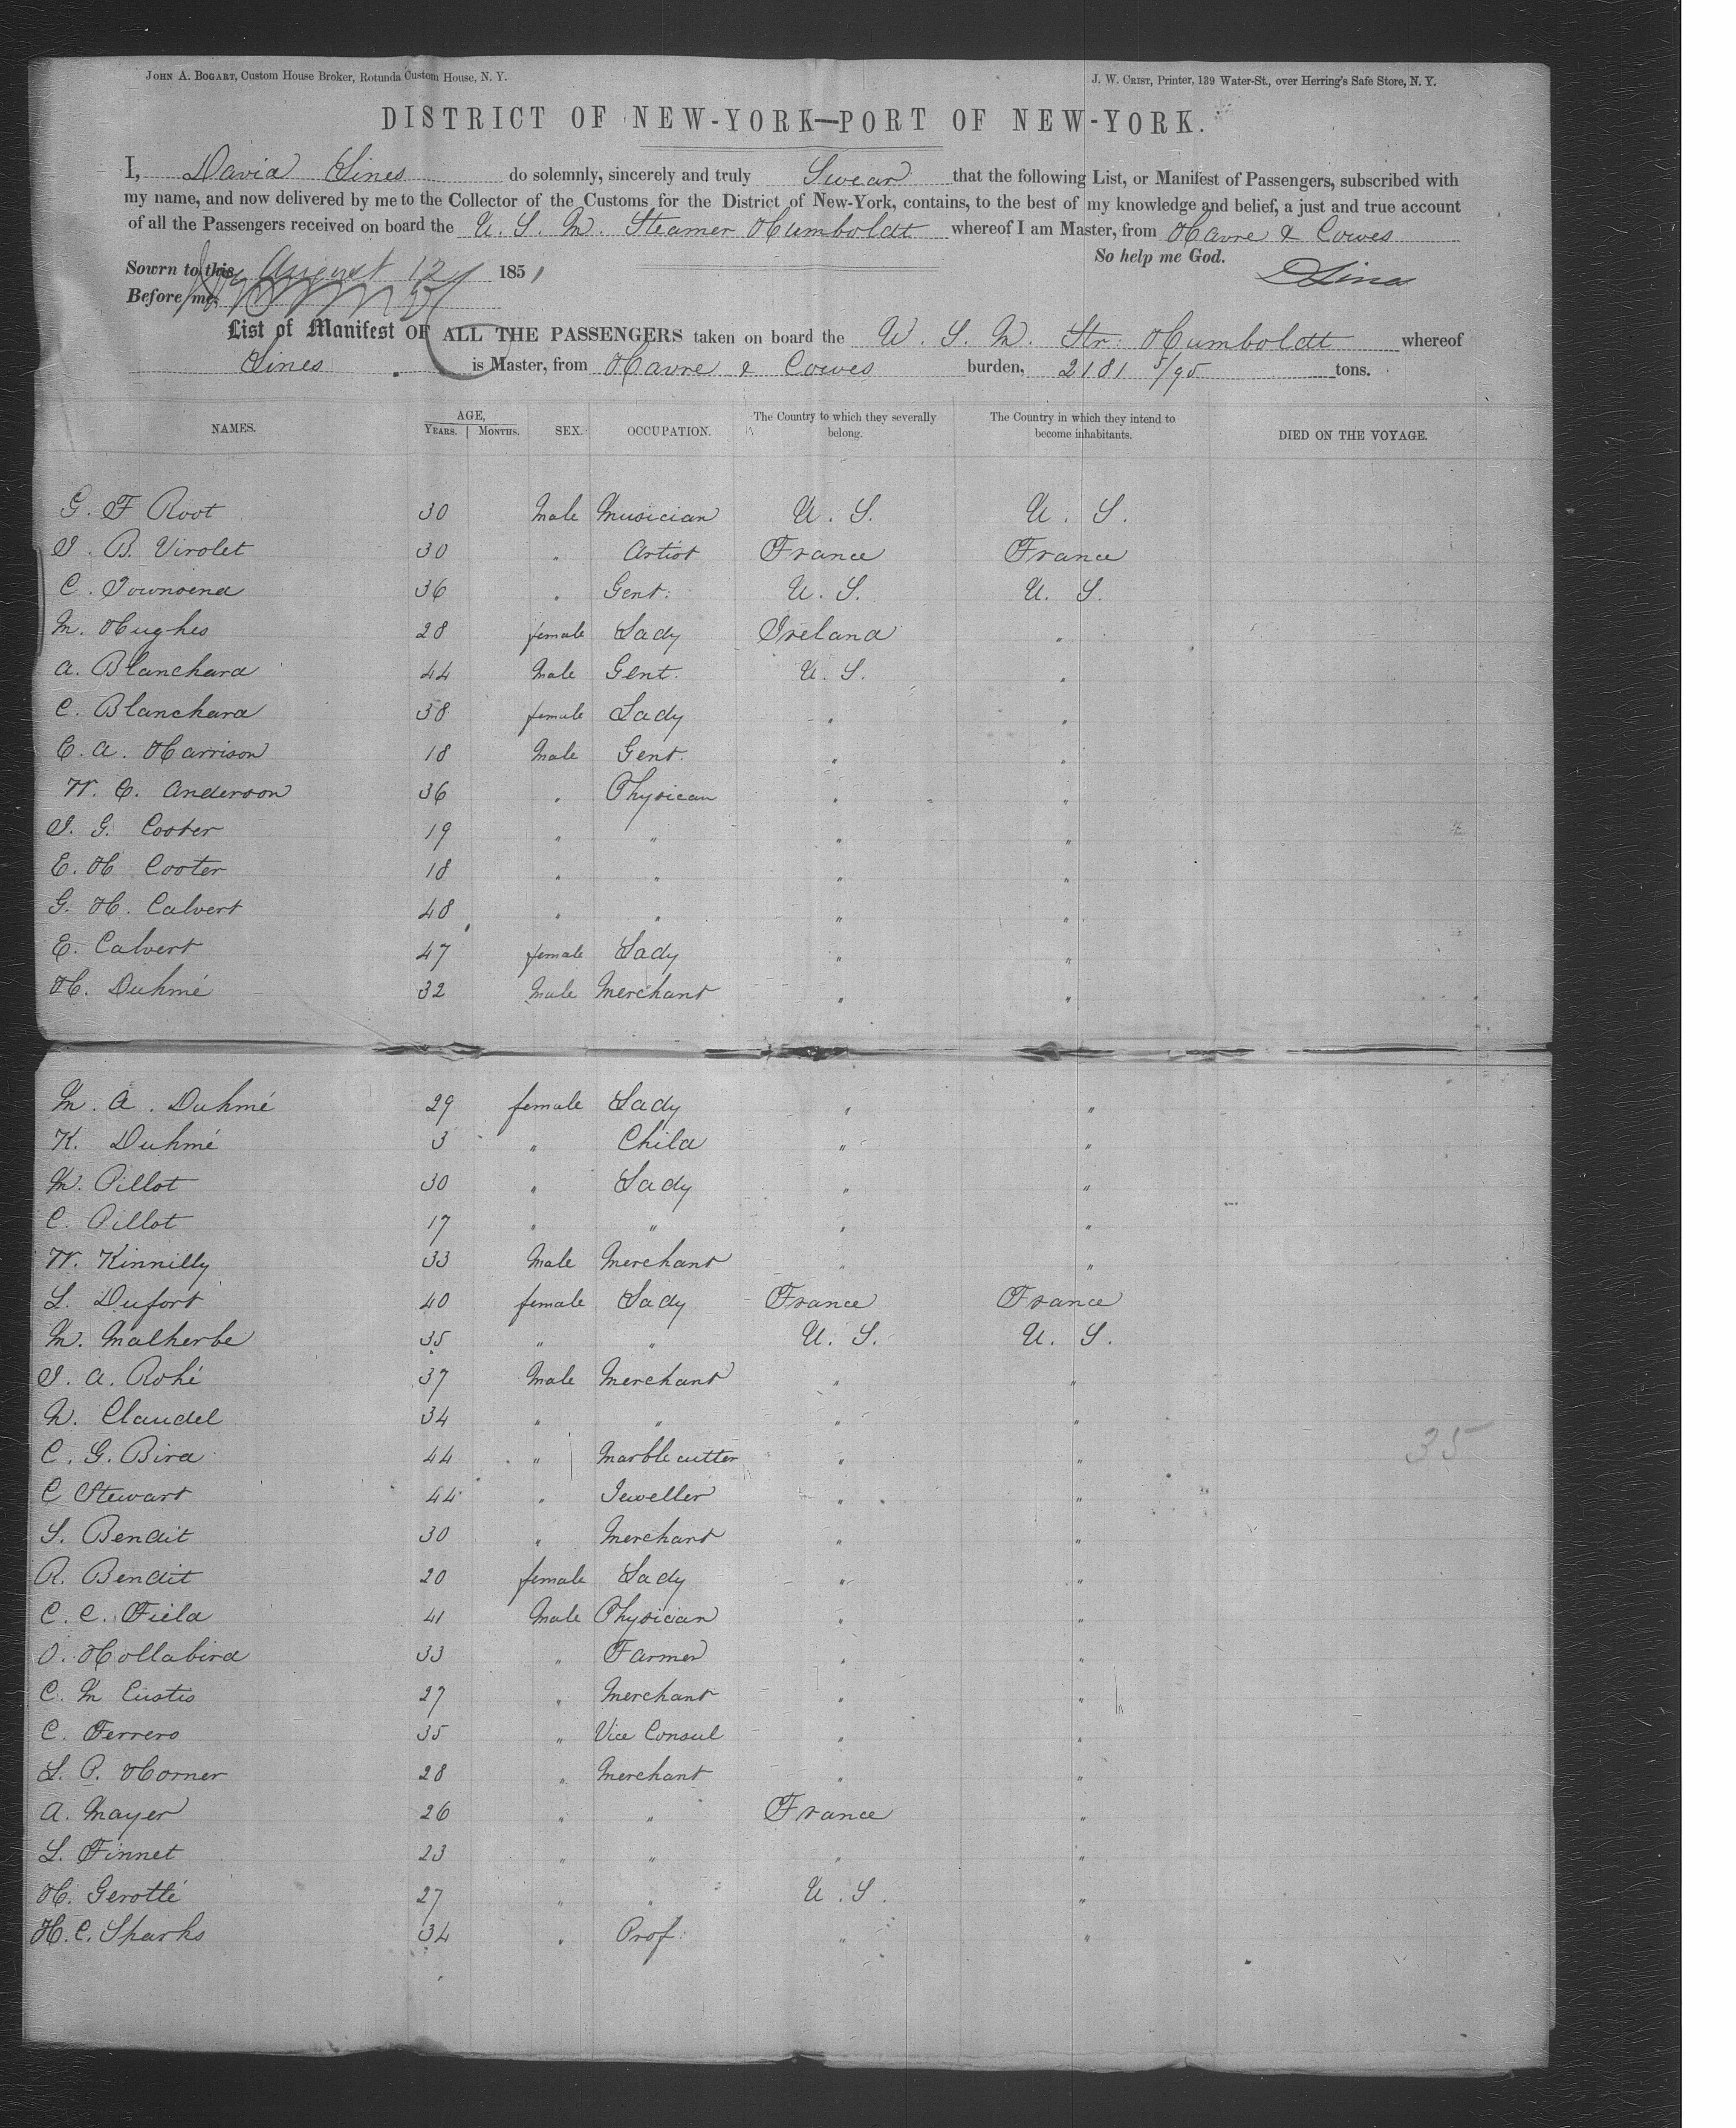 JOHN A. BOGART, Custom House Broker, Rotunda Custom House, N. Y. J. W. CRIST, Printer, 139 Water-St., over Herring's Safe Store, N. Y.
DISTRICT OF NEW-YORK—PORT OF NEW-YORK.
I, David Lines do solemnly, sincerely and truly Swear that the following List, or Manifest of Passengers, subscribed with
my name, and now delivered by me to the Collector of the Customs for the District of New-York, contains, to the best of my knowledge and belief, a just and true account
of all the Passengers received on board the U. S. M. Steamer Humboldt whereof I am Master, from Havre & Cowes
So help me God.
Sowrn to this August 12 1851 DLines
Before me,
List of Manifest OF ALL THE PASSENGERS taken on board the U. S. M. Str. Humboldt whereof
Lines is Master, from Havre & Cowes burden, 2181 5/95 tons.
NAMES. AGE, YEARS. MONTHS. SEX. OCCUPATION. The Country to which they severally belong. The Country in which they intend to become inhabitants. DIED ON THE VOYAGE.
G. F Root 30 Male Musician U. S. U. S.
J. B. Virolet 30 " Artist France France
C. Townsend 36 " Gent. U. S. U. S.
M. Hughes 28 female Lady Ireland "
A. Blanchard 44 Male Gent. U. S. "
C. Blanchard 38 female Lady " "
C. A. Harrison 18 Male Gent. " "
W. C. Anderson 36 " Physican " "
J. G. Coster 19 " " " "
E. H Coster 18 " " " "
G. H. Calvert 48 " " " "
E. Calvert 47 female Lady " "
H. Duhmé 32 Male Merchant " "
M. A. Duhmé 29 female Lady " "
K. Duhmé 3 " Child " "
M. Pillot 30 " Lady " "
C. Pillot 17 " " " "
W. Kinnilly 33 Male Merchant " "
L. Dufort 40 female Lady France France
M. Malherbe 35 " " U. S. U. S.
J. A. Rohé 37 Male Merchant " "
N. Claudel 34 " " " "
C. G. Bird 44 " Marble cutter " " 35
C Stewart 44 " Jeweller " "
S. Bendit 30 " Merchant " "
R. Bendit 20 female Lady " "
C. C. Field 41 Male Physician " "
O. Hollabird 33 " Farmer " "
C. M Eustis 27 " Merchant " "
C. Ferrero 35 " Vice Consul " "
L. P. Horner 28 " Merchant " "
A. Mayer 26 " " France "
L. Finnet 23 " " " "
H. Gerotté 27 " " U. S. "
H. C. Sparks 34 " Prof. " "